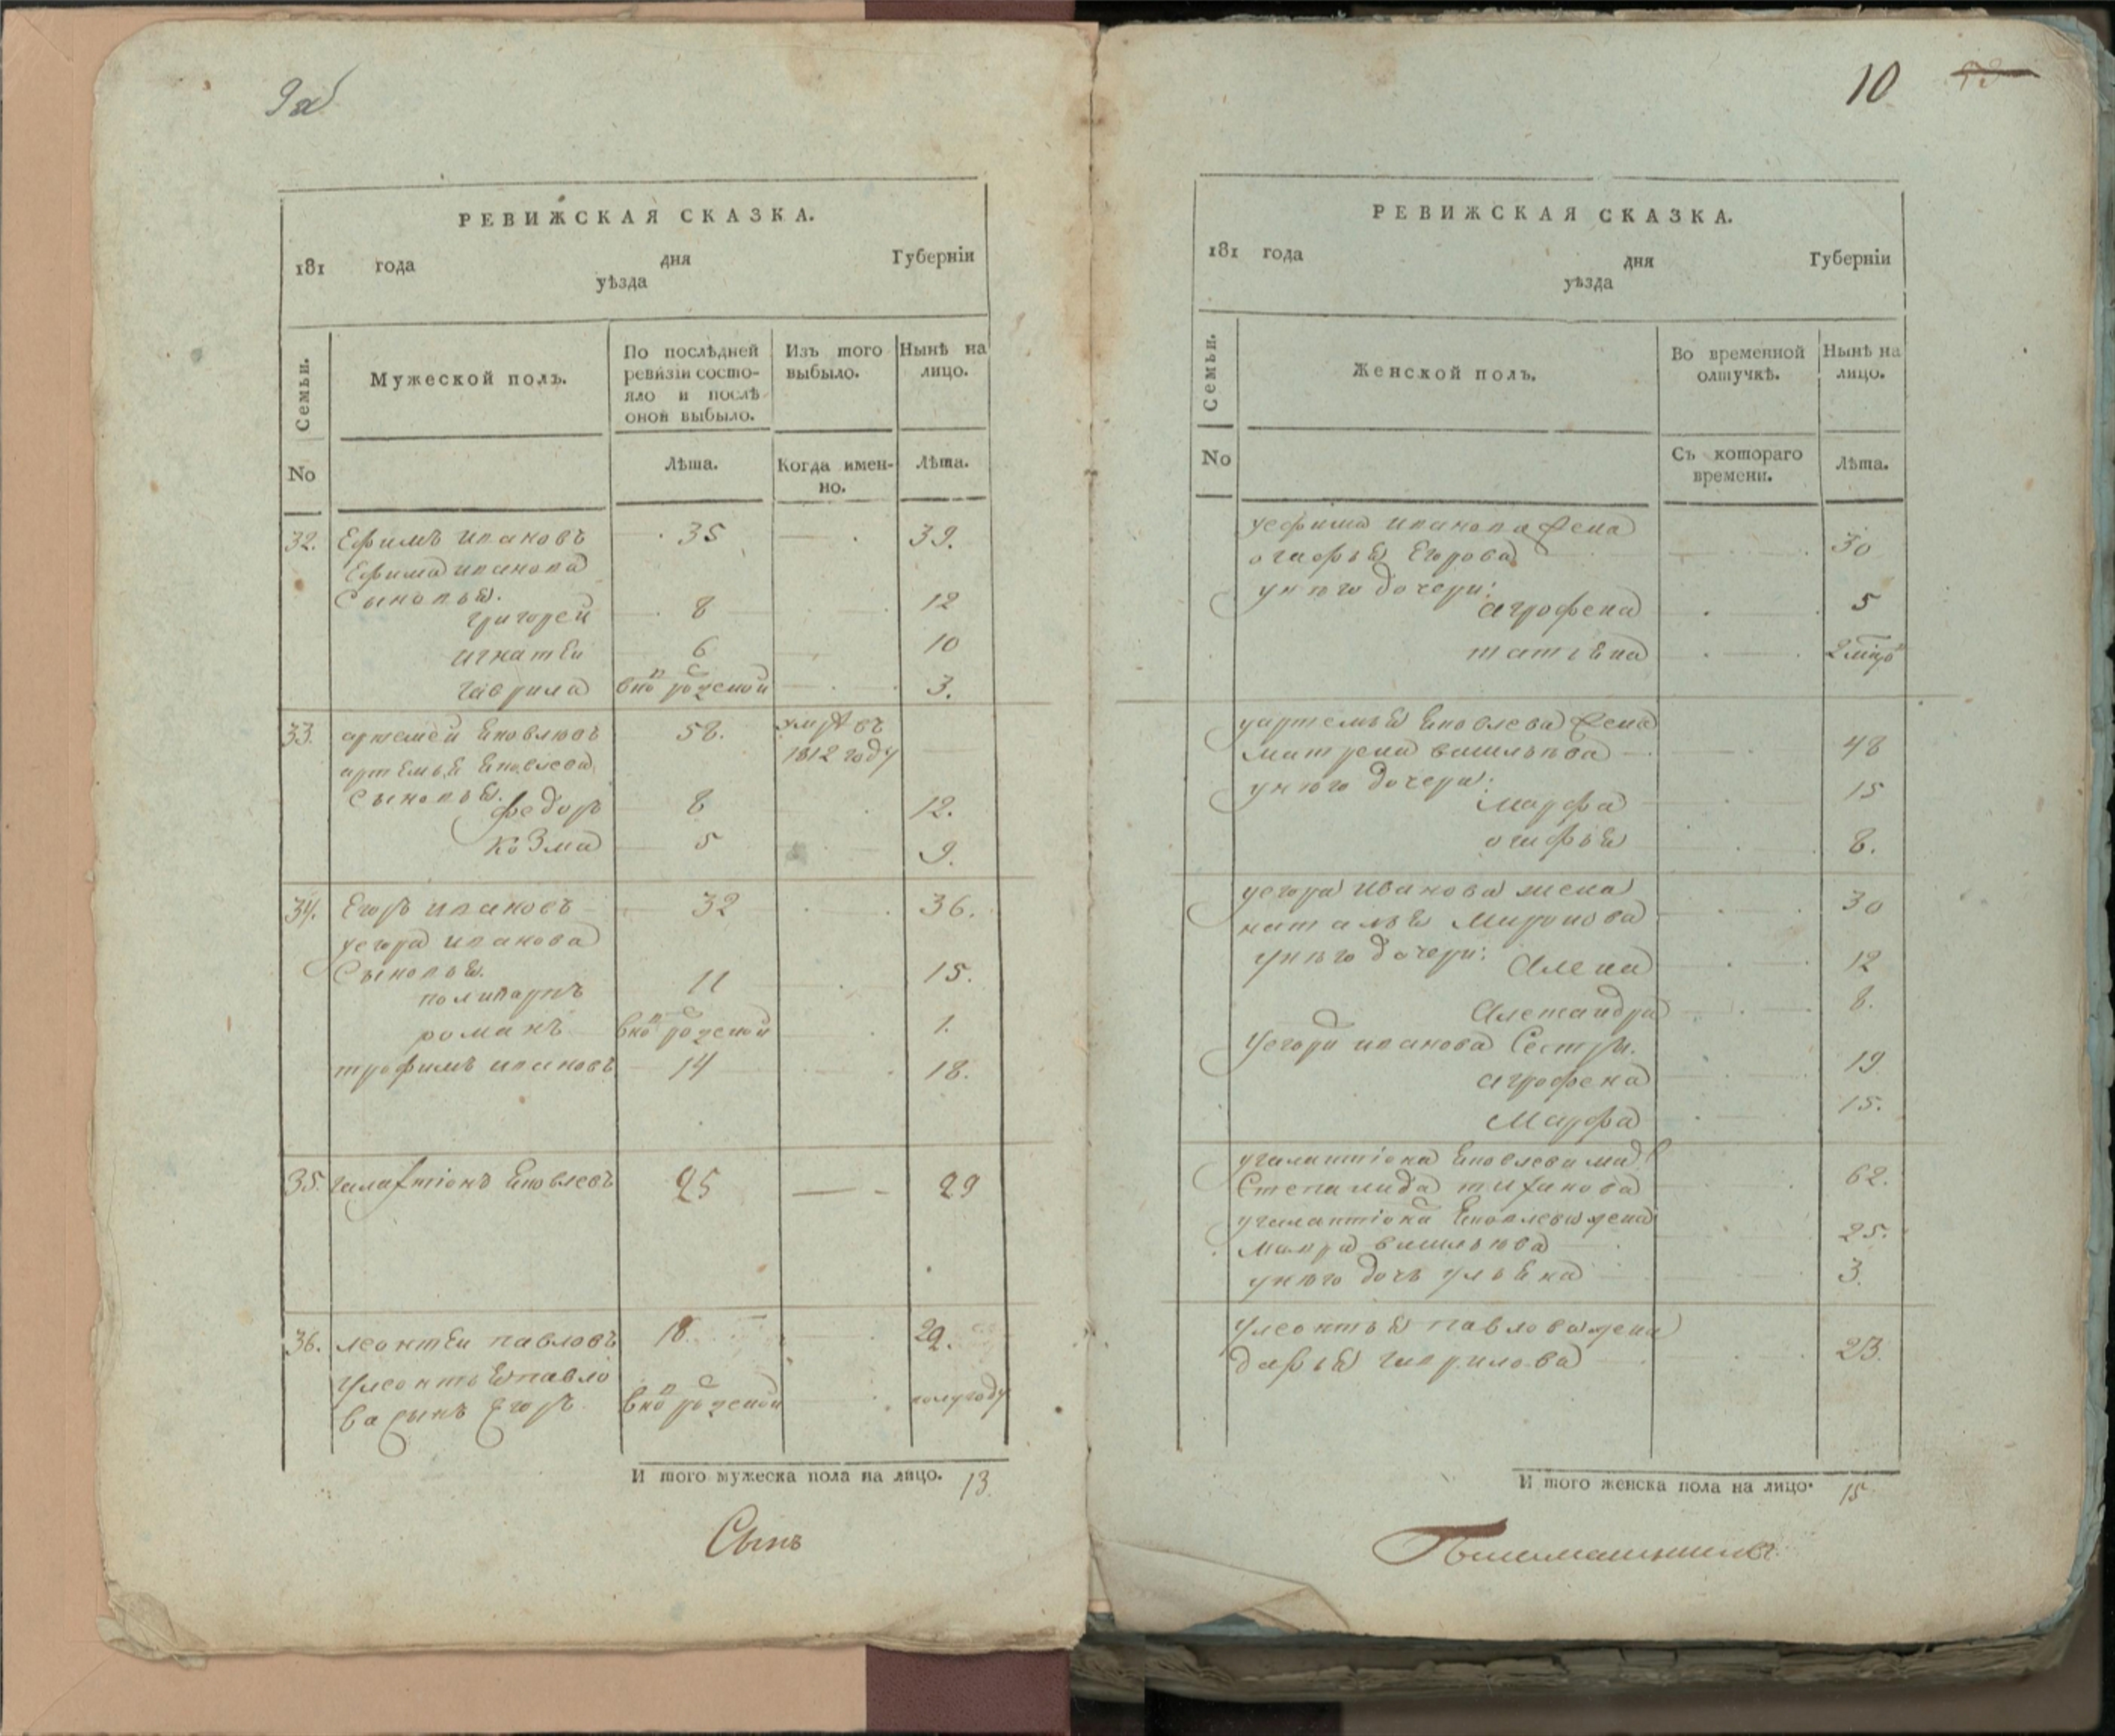 9об
РЕВИЖСКАЯ СКАЗКА.
181 года дня Губерніи
уѣзда
Семьи.
Мужеской полъ.
По послѣдней ревизіи состояло и послѣ оной выбыло.
Изъ того выбыло.
Нынѣ на лицо.
No
Лѣта.
Когда именно.
Лѣта.
32. Ефимъ ивановъ 35 39.
Ефима иванова
Сыновья.
григорей 8 12
игнатеи 6 10
гаврила 3.
33. артемеи яковлювъ 58. 1812 году
артемья яковлева
Сыновья. федоръ 8 12.
козма 5 9.
34. Егоръ ивановъ 32 36.
уегора иванова
Сыновья.
поликарпъ 11 15.
романъ 1.
трофимъ ивановъ 14 18.
35. галахтіонъ яковлевъ 25 29
36. леонтеи павловъ 18. 22.
Улеонтья павло
ва сынъ Егоръ полугоду
И того мужеска пола на лицо. 13.
Сынъ
10
РЕВИЖСКАЯ СКАЗКА.
181 года дня Губерніи
уѣзда
Семьи.
Женской полъ.
Во временной отлучкѣ.
Нынѣ на лицо.
No
Съ котораго времени.
Лѣта.
уефима иванова жена
огафья Егорова 30
унего дочери:
агрофена 5
татьяна
уартемья яковлева жена
матрена васильева 48
унего дочери:
марфа 15
огафья 8.
уегора иванова жена
наталья миронова 30
унего дочери: Алена 12
Александра 8.
Уегора иванова Сестры.
агрофена 19
Марфа 15.
угалактіона яковлева
Степанида тиханова 62.
угалактіона яковлева жена
мавра васильева 25.
унего дочь ульяна 3.
Улеонтья павлова жена
дарья гаврилова 23.
И того женска пола на лицо. 15